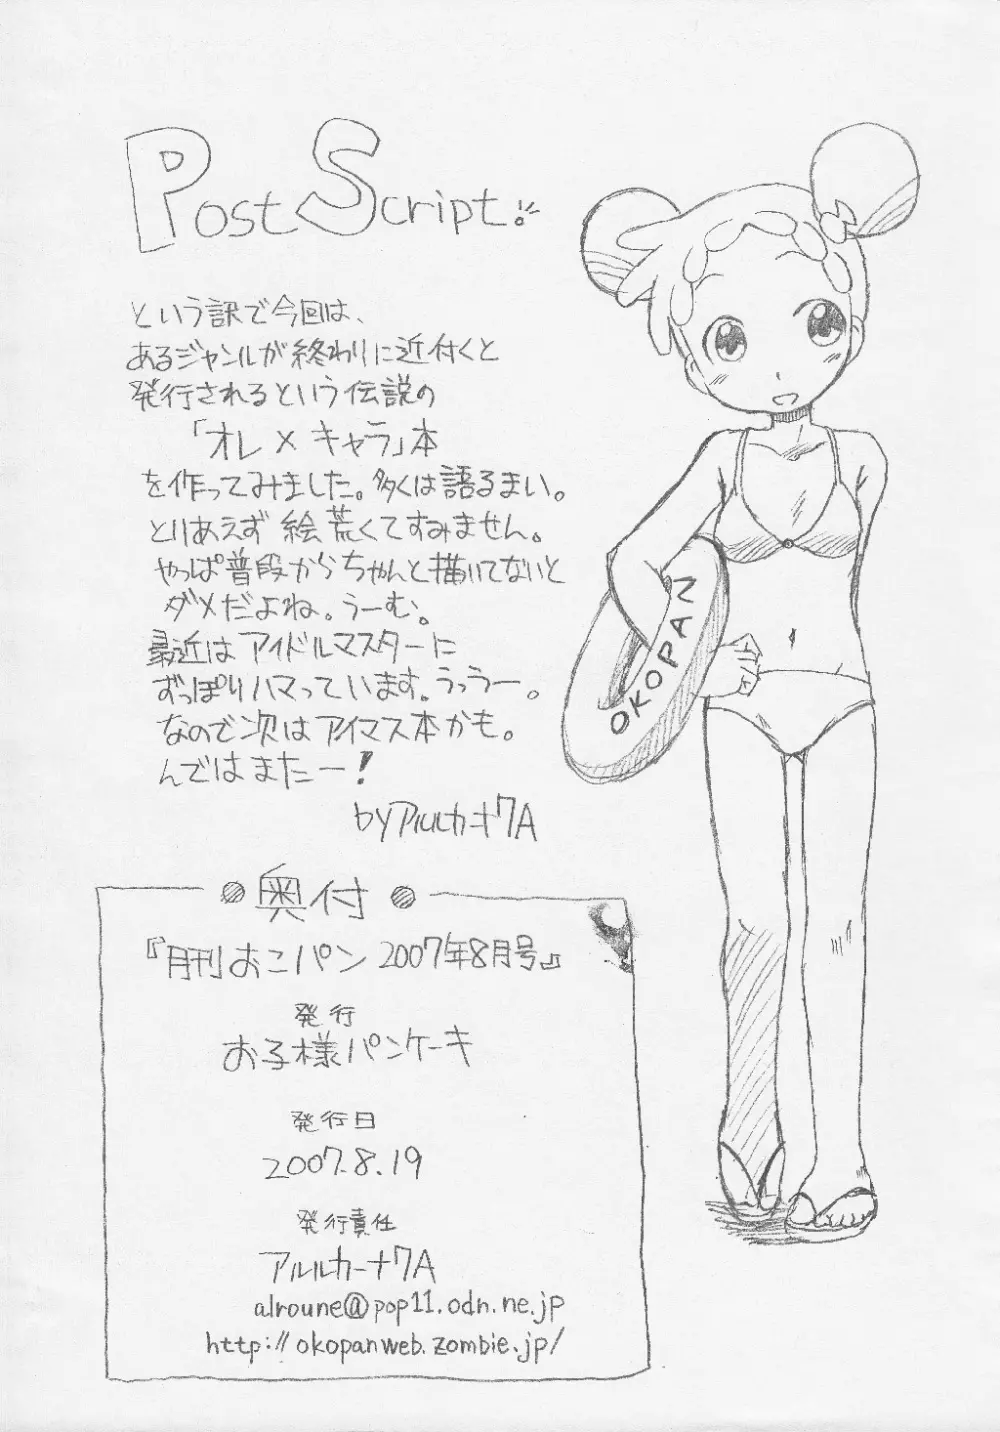 Post Script!
という訳で今回は、
あるジャンルが終わりに近付くと
発行されるという伝説の
「オレ×キャラ」本
を作ってみました。多くは語るまい。
とりあえず絵荒くてすみません。
やっぱ普段からちゃんと描いてないと
ダメだよね。うーむ。
最近はアイドルマスターに
ずっぽりハマっています。うっうー。
なので次はアイマス本かも。
んではまたー!
byアルルカーナ7A
OKOPAN
奥付
『月刊おこパン2007年8月号』
発行
お子様パンケーキ
発行日
2007.8.19
発行責任
アルルカーナ7A
alroune@pop11.odn.ne.jp
http://okopanweb.zombie.jp/